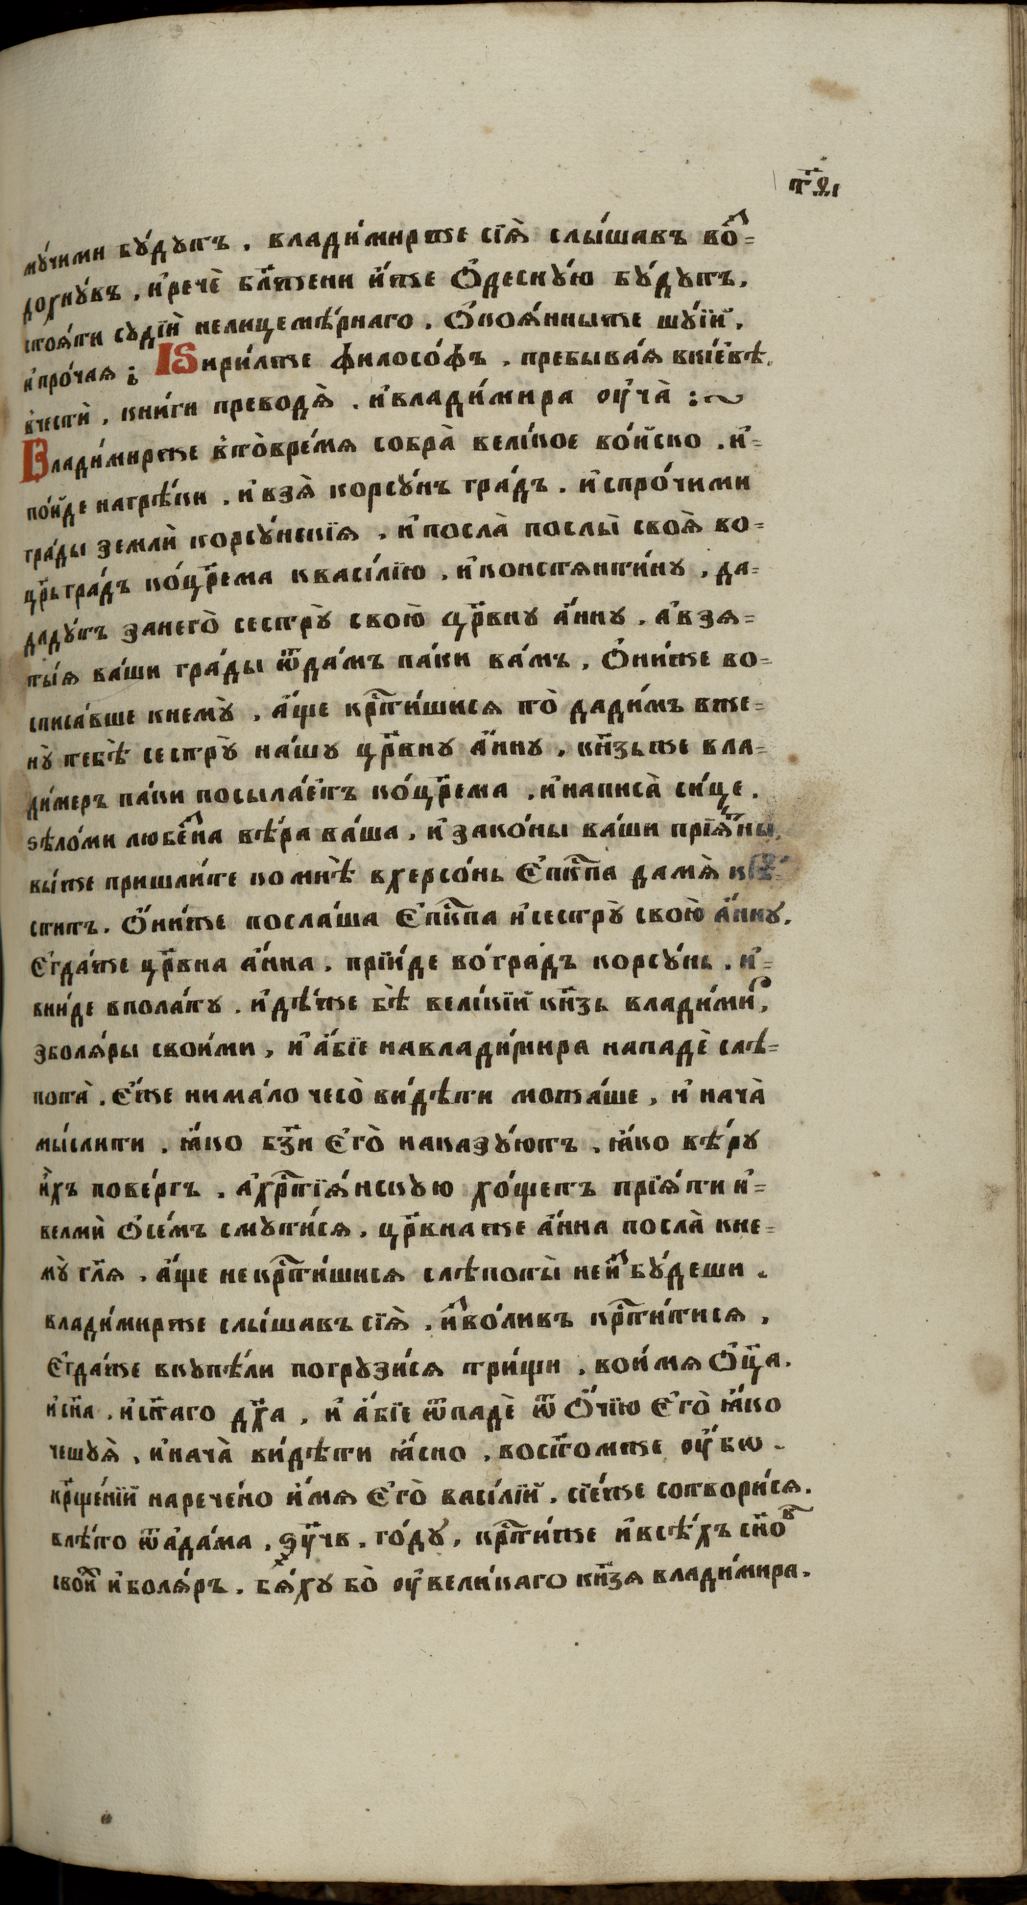 мꙋ́чими бꙋ́дꙋтъ . влади́мирже сїѧ̀ слы́шавъ во́з̾=
дохнꙋ́въ , и҆речѐ бл҃жени и҆́же ѻ҆деснꙋ́ю бꙋ́дꙋтъ ,
стоѧ́ти сꙋдїѝ нелицемѣ́рнаго . ѻ҆коѧ́нныѧже шꙋ́їи ,
и҆про́чаѧ ; Кири́лже филосо́фъ . пребыва́ѧ вкі́евѣ .
в̾че́сти . кни́ги преводѧ̀ . и҆влади́мира оу҆ча̀ :~
Влади́мирже в̾то̀вре́мѧ собра̀ вели́кое во́йско . и҆=
по́йде нагрѣ́ки . и҆взѧ̀ корсꙋ́нъ гра́дъ . и҆спро́чими
гра́ды землѝ корсꙋ́нскїѧ . и҆посла̀ послы̀ своѧ̀ во=
цр҃ьгра́дъ ко́цр҃ема квасі́лїю , и҆констѧнти́нꙋ , да=
дадꙋ́тъ занего̀ сестрꙋ̀ свою̀ цр҃внꙋ а҆́ннꙋ . а҆взѧ=
ты́ѧ ва́ши гра́ды ѿда́мъ па́ки ва́мъ , ѻ҆ни́же во=
списа́вше кнемꙋ̀ , а҆́ще крⷭ҇ти́шисѧ то̀ дади́мъ вже=
нꙋ̀ тебѣ̀ сестрꙋ̀ на́шꙋ цр҃внꙋ а҆́ннꙋ , кн҃зьже вла=
ди́меръ па́ки посыла́етъ ко́цр҃ема , и҆написа̀ си́це .
ѕѣло́ми любе́зна вѣ́ра ва́ша , и҆ зако́ны ва́ши прїѧ́тны ,
вы́же пришли́те комнѣ̀ вхерсо́нь е҆пкⷭ҇па дамѧ̀ крⷭ҇=
ститъ . ѻ҆ни́же посла́ша е҆пкⷭ҇па и҆сестрꙋ̀ свою̀ а҆́ннꙋ .
е҆гда́же цр҃вна а҆́нна , прїи́де во́градъ корсꙋ́нь . и҆=
вни́де вполатꙋ . и҆дѣ́же бѣ̀ вели́кїй кн҃зь влади́миⷬ҇ ,
зболѧ́ры свои́ми , и҆ а҆́бїе навлади́мира нападѐ слѣ=
пота̀ . е҆́же нима́ло чесо̀ ви́дѣти можа́ше , и҆ нача̀
мы́слити . ꙗ҆́ко бз҃и е҆го̀ наказꙋ́ютъ . ꙗ҆́ко вѣ́рꙋ
и҆́хъ пове́ргъ . а҆хрⷭ҇тїѧ́нскꙋю хо́щетъ прїѧ́ти и҆=
велмѝ ѻ҆се́мъ смꙋти́сѧ . цр҃внаже а҆́нна посла̀ кне=
мꙋ̀ гл҃ѧ . а҆́ще некрⷭ҇ти́шисѧ слѣпоты̀ неиз̾бꙋ́деши .
влади́мирже слы́шавъ сїѧ̀ . из̾во́ливъ крⷭ҇ти́тисѧ ,
е҆гда́же вкꙋпѣ́ли погрꙋзи́сѧ три́щи . вои́мѧ ѻ҆ц҃а .
и҆сн҃а . и҆ст҃аго дх҃а , и҆ а҆́бїе ѿпадѐ ѿ ѻ҆́чїю е҆го̀ ꙗ҆́ко
чешꙋѧ̀ , и҆нача̀ ви́дѣти ꙗ҆́сно , восто́мже оу҆бѡ .
крⷭ҇ще́нїи нарече́но и҆́мѧ е҆го̀ васі́лїй . сїе́же сотвори́сѧ .
влѣ́то ѿа҆да́ма , ҂ѕу҃чв . го́дꙋ , крⷭ҇ти́же и҆всѣ́хъ сн҃оⷡ
своⷯи҆ и҆болѧ́ръ . бѧ́хꙋ бо̀ оу҆вели́каго кн҃зѧ влади́мира .